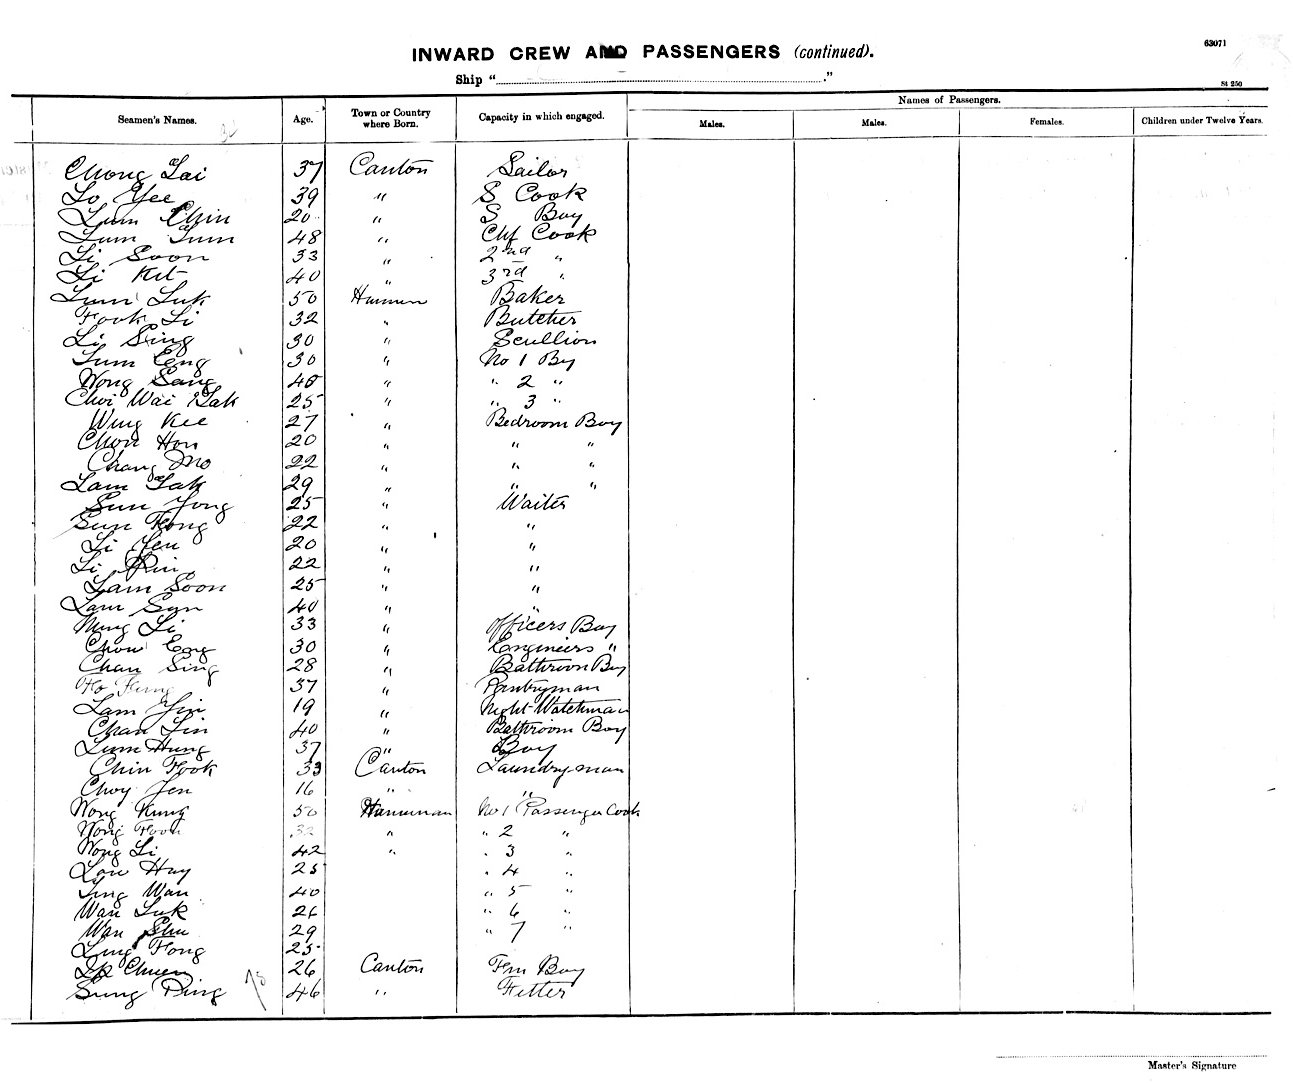 63071
INWARD CREW AND PASSENGERS (continued).
Ship " ."
St 250
Seamen's Names. Age. Town or Country where Born. Capacity in which engaged. Names of Passengers.
Males. Males. Females. Children under Twelve Years.
Chong Tai 37 Canton Sailor
Lo Yee 39 " S Cook
Lum Chin 20 " S Boy
Lum Tum 48 " Chf Cook
Li Soon 33 " 2nd "
Li Kit 40 " 3rd "
Lum Luk 50 Baker
Fook Li 32 " Butcher
Li Sing 30 " Scullion
Lum Eng 30 " No 1 By
Wong Sang 40 " " 2 "
Choi Wai Tak 25 " " 3 "
Wing Kee 27 " Bedroom Boy
Chow Hon 20 " " "
Chang Mo 22 " " "
Lam Tak 29 " " "
Sun Yong 25 " Waiter
Sun Fong 22 " "
Li Yen 20 " "
Li 22 " "
Lam Soon 25 " "
Lam Sun 40 " "
Ming Li 33 " Officers Boy
Chow Eng 30 " Engineers "
Chan Sing 28 " Bathroon Boy
Ho Fung 37 " Pantryman
Lam Yin 19 " Night Watchman
Chan Lin 40 " Bathroom Boy
Lum Hung 37 " Boy
Chin Fook 33 Canton Laundryman
Choy Jen 16 " "
Wong Kung 50 No 1 Passenger Cook
Wong 32 " " 2 "
Wong Li 42 " " 3 "
Low Hay 25 " 4 "
Ling Wan 40 " 5 "
Wan Luk 26 " 6 "
Wan Shu 29 " 7 "
Ling Fong 25
Ip Chuen 26 Canton Frn Boy
Sung Ping 46 " Fitter
Master's Signature